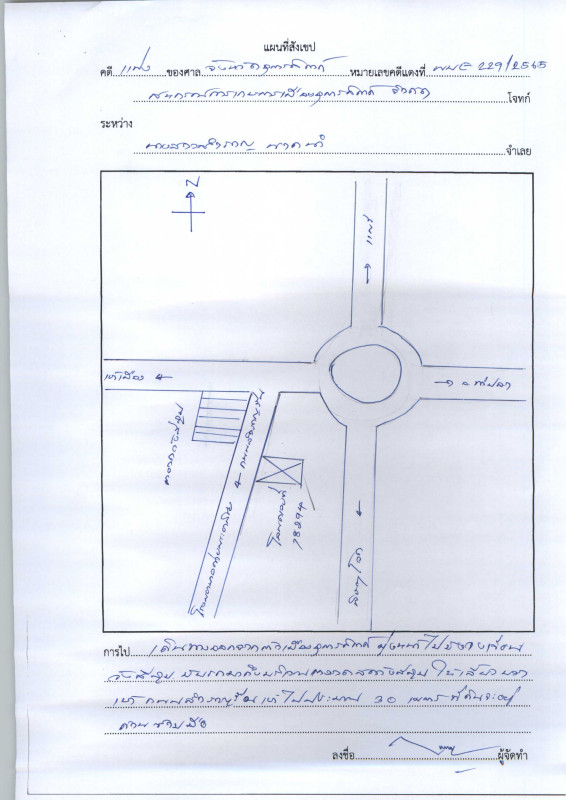 แผนที่สังเขป
คดี แพ่ง ของศาล จังหวัดอุตรดิตถ์ หมายเลขคดีแดงที่ ผบE 229/2565
สหกรณ์การเกษตรเมืองอุตรดิตถ์ จำกัด โจทก์
ระหว่าง
นางสาวสำราญ จำเลย
N
แพร่
เข้าเมือง
ท่าปลา
ตลาดวังสีสูบ
ถนนสำราญรื่น
โฉนดเลขที่
78294
พิษณุโลก
การไป เดินทางออกจากตัวเมืองอุตรดิตถ์ มุ่งหน้าไป
วังสีสูบ ขับรถมาถึงบริเวณตลาดสดวังสีสูบ ให้เลี้ยวขวา
เข้าถนนสำราญรื่น เข้าไปประมาณ 30 เมตร ที่ดินจะอยู่
ด้านซ้ายมือ
ลงชื่อ ผู้จัดทำ